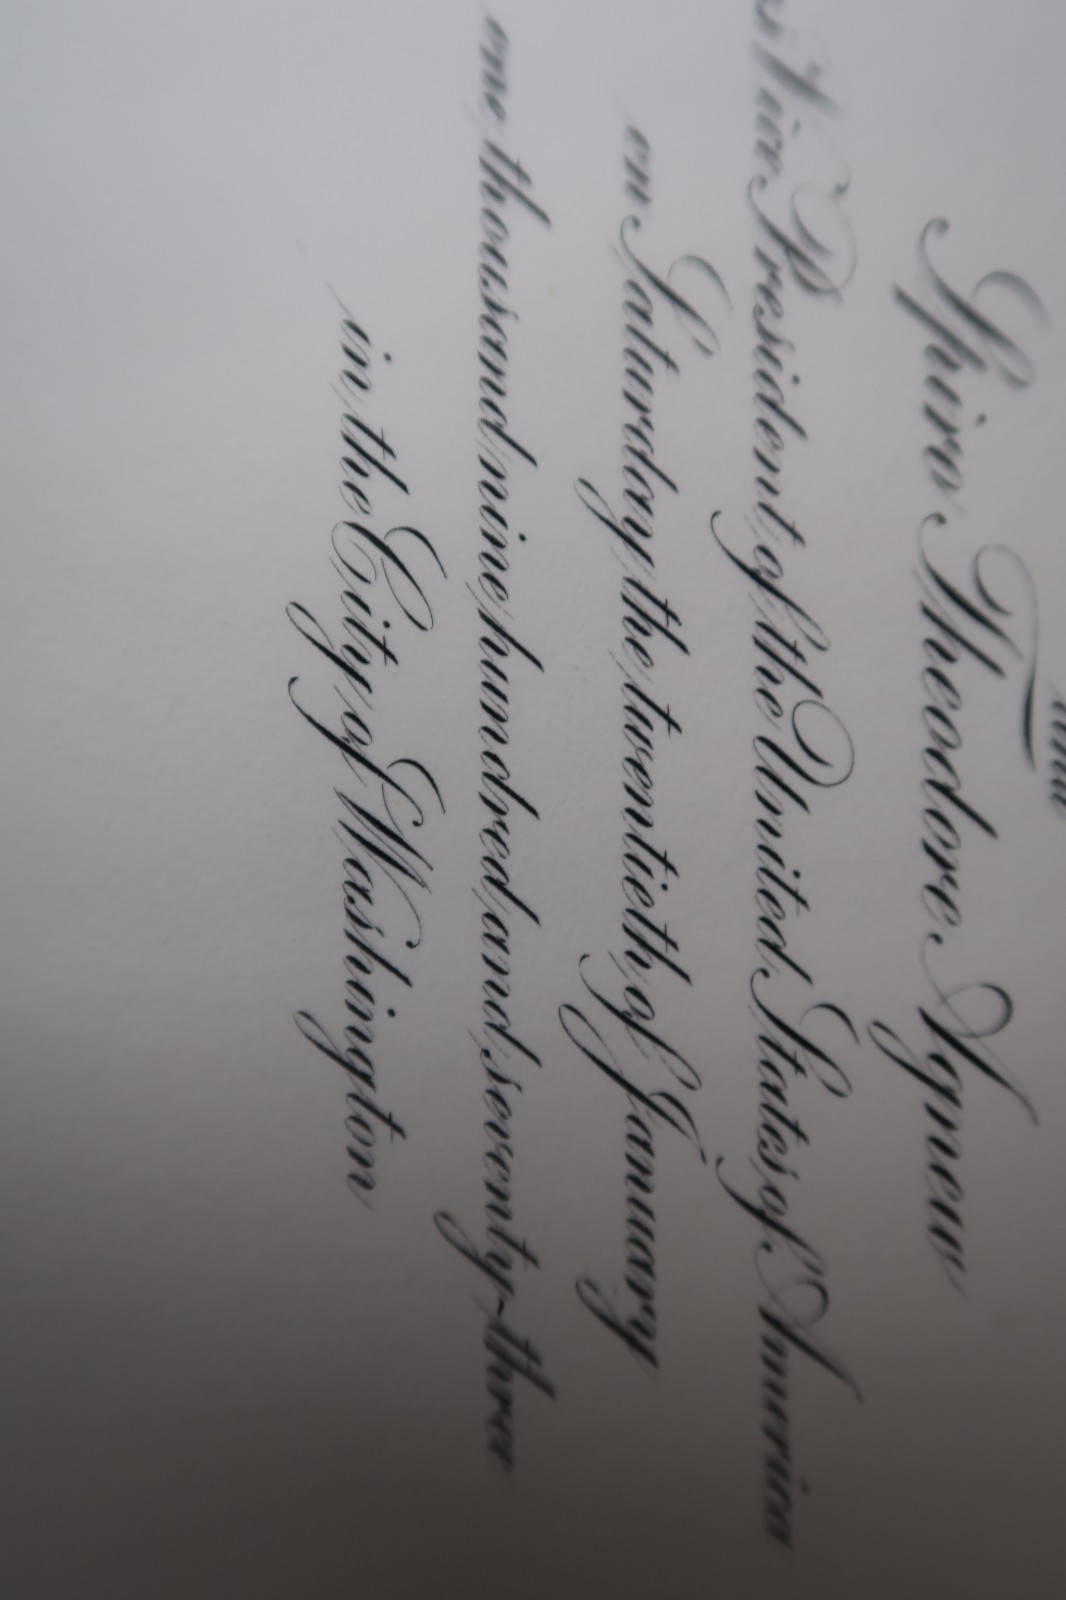 and
Spiro Theodore Agnew
as Vice President of the United States of America
on Saturday the twentieth of January
one thousand nine hundred and seventy-three
in the City of Washington